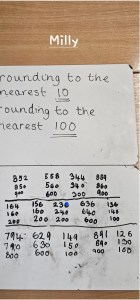 Milly
rounding to the
nearest 10
rounding to the
nearest 100
852 558 344 889
850 560 340 890
900 600 300 900
164 156 236 636 136
160 160 240 640 140
200 200 200 600 100
794 629 149 891 126
790 630 150 890 130
800 600 100 900 100